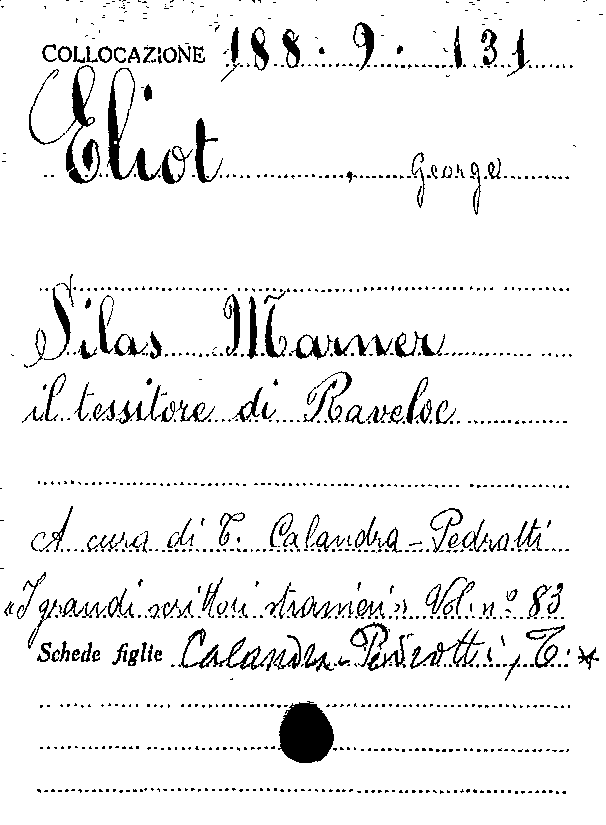 COLLOCAZIONE 188. 9. 131
Eliot, George
Silas Marner
il tessitore di Raveloe
A cura di T. Calandra-Pedrotti
«I grandi scrittori stranieri» Vol. n° 83
Schede figlie Calandra-Pedrotti, T. *